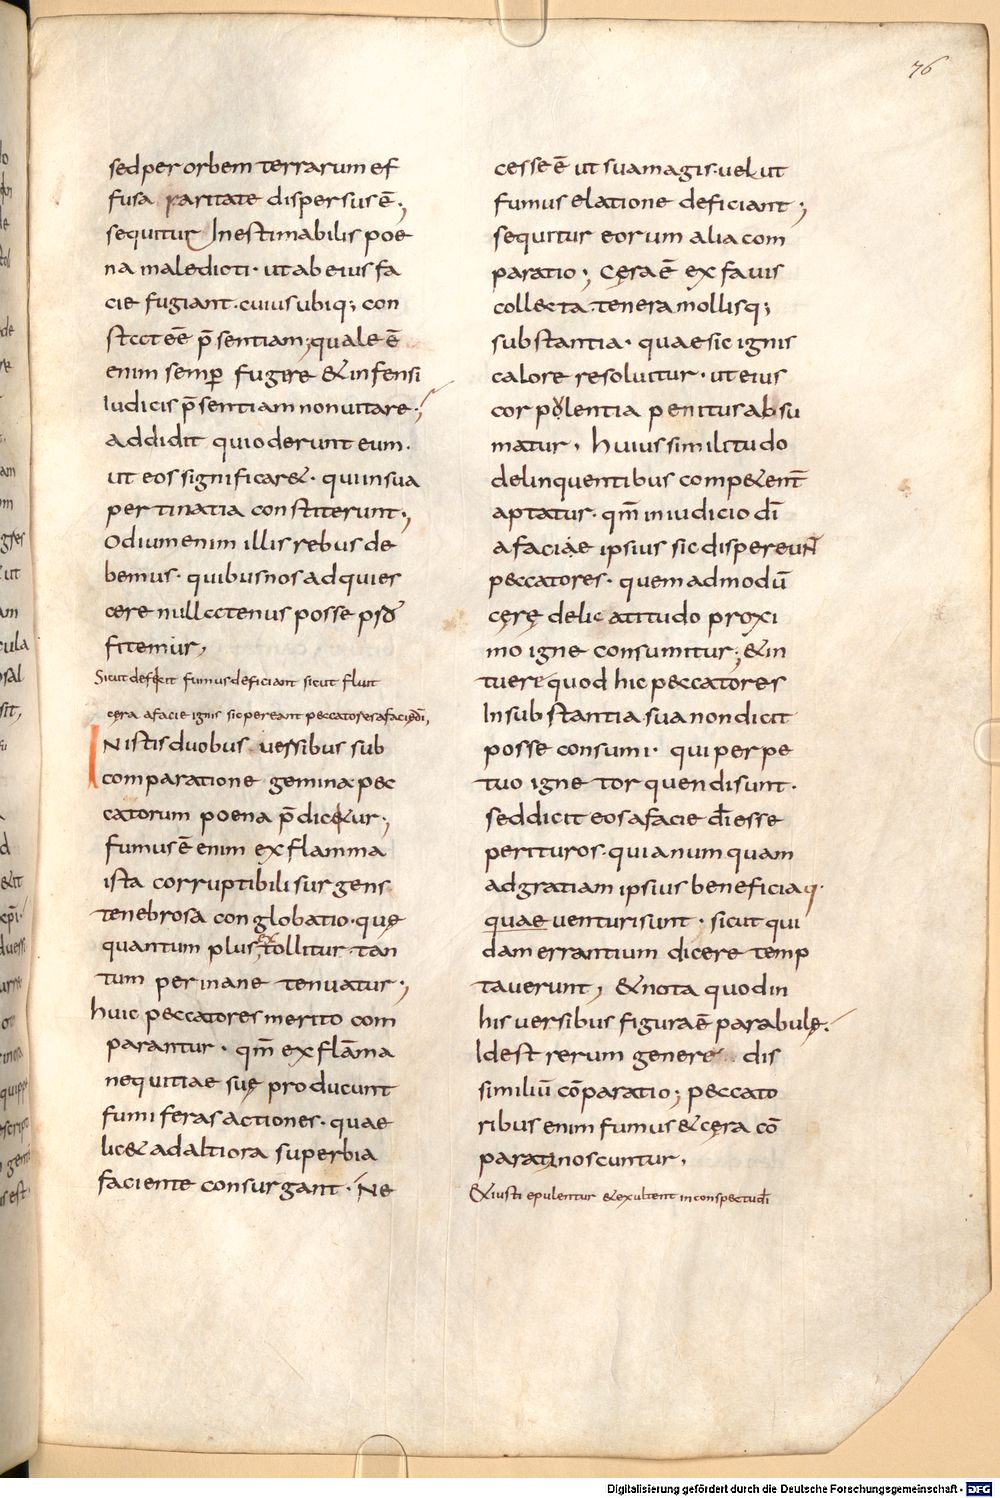 76
sed per orbem terrarum ef
fusa raritate dispersus ē;
sequitur Inestimabilis poe
na maledicti · ut ab eius fa
cie fugiant · cuius ubiq; con
stat eē p̄sentiam; quale ē
enim semp̄ fugire & infensi
Iudicis p̄sentiam non uitare;
addidit qui oderunt eum ·
ut eos significar& · qui in sua
pertinatia constiterunt;
Odium enim illis rebus de
bemus · quibus nos adquies
cere nullatenus posse
fitemur,
Sicut deficit fumus deficiant sicut fluit
cera a facie ignis sic pereant peccatores a facie dī,
IN istis duobus uersibus sub
comparatione gemina pec
catorum poena p̄dic&ur;
fumus ē enim ex flamma
ista corruptibili surgens
tenebrosa conglobatio · quę
quantum plus extollitur · tan
tum per inane tenuatur;
huic peccatores merito com
parantur · qm̄ ex flāma
nequitiae suę producunt
fumiferas actiones · quae
lic& ad altiora superbia
faciente consurgant · Ne
cesse ē ut sua magis · uel ut
fumus elatione deficiant;
sequitur eorum alia com
paratio; Cęra ē ex fauis
collecta · tenera mollisq;
substantia · quae sic ignis
calore resoluitur · ut eius
corpolentia penitus absu
matur, huius similitudo
delinquentibus comp&enT̄
aptatur · qm̄ in iudicio dī
a faciae ipsius sic dispereuNT
peccatores · quemadmodū
cęrę delicatitudo proxi
mo igne consumitur; & in
tuere quod hic peccatores
In substantia sua non dicit
posse consumi · qui perpe
tuo igne torquendi sunt ·
sed dicit eos a facie dī esse
perituros · quia numquam
ad gratiam ipsius beneficiaq·
quae uenturi sunt · sicut qui
dam errantium dicere temp
tauerunt, & nota quod in
his uersibus figura ē parabulę;
Idest rerum genere dis
similiū cōparatio; peccato
ribus enim fumus & cęra cō
parati noscuntur,
& iusti epulentur & exultent in conspectu dī
Digitalisierung gefördert durch die Deutsche Forschungsgemeinschaft · DFG